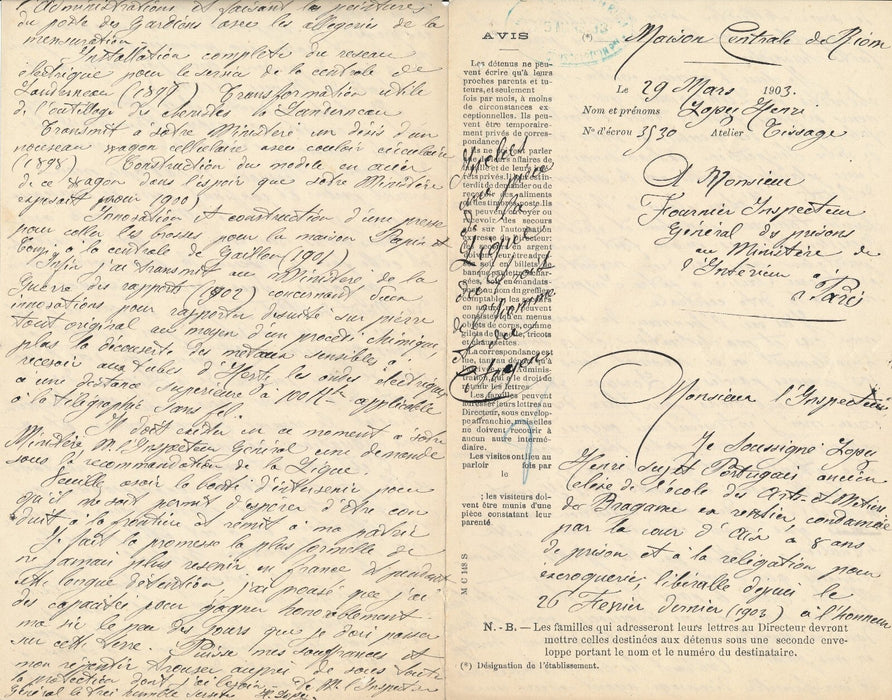 l'Administrations et faisant les peintures
du poste des Gardiens avec les allegories de la
mensuration
Installation complète du reseau
électrique pour le service de la centrale de
Landerneau (1897) Transformation utile
de l'outillage des Menottes à Landerneau
Transmit à votre Ministère un devis d'un
nouveau wagon cellulaire avec couloir circulaire
(1898) Construction du modèle en acier
de ce wagon dans l'espoir que votre Ministère
exposait pour 1900
Innovation et construction d'une presse
pour coller les brosses pour la maison Papin et
à la centrale de Gaillon (1901)
Enfin j'ai transmit au Ministère de la
Guerre des rapports (1902) concernant d'un
innovations pour rapporter dessus sur pierre
tout original au moyen d'un procédé chimique
plus la découverte des metaux sensibles à
recevoir aux tubes d' Hertz les ondes électriques
à une distance superieure à 100 applicable
à la télégraphie sans fil.
Il doit exister en ce moment à votre
Ministère M. l'Inspecteur Général une demande
sous la recommandation de la Ligue
Veuille avoir la bonté d'intervenir pour
qu'il me soit permit d'esperer d'être con
duit à la frontière et remit à ma patrie
Je fait la promesse la plus formelle de
n' jamais plus revenir en france et pendant
cette longue détention j'ai prouvé que j'ai
des capacités pour gagner honorablement
ma vie le peu des jours que je dois passer
sur cette terre. Puisse mes souffrances et
mon repentir trouver auprès de vous toute
la protection dont j'ai besoin. De M. l'Inspecteur
Général le très humble serviteur H. Lopez
AVIS
Les détenus ne peu-
vent écrire qu'à leurs
proches parents et tu-
teurs, et seulement
fois par mois, à moins
de circonstances ex-
ceptionnelles. Ils peu-
vent être temporaire-
ment privés de corres-
pondance
parler
affaires de
et de leurs
privés. Il est in-
terdit de demander ou de
recevoir des aliments
peuvent envoyer ou
recevoir des secours
que sur l'autorisation
expresse directeur;
argent
doivent
soit
banque
mandats-
comptable
peuvent
en menus
objets de corps, comme
gilets de tricots
chaussettes.
La correspondance est
lue, tant au départ qu'à
l'arrivée, par l'Adminis-
tration, qui a le droit de
retenir les lettres.
Les familles peuvent
adresser leurs lettres au
Directeur, sous envelop-
pe affranchie, mais elles
ne doivent recourir à
aucun autre intermé-
diaire.
Les visites ont lieu au
parloir fois par
le
; les visiteurs doi-
vent être munis d'une
pièce constatant leur
parenté.
de la
Ligue
des droits
de l'homme
et du
Citoyen
M C 148 S
(*) Maison Centrale de Riom
Le 29 Mars 1903.
Nom et prénoms Lopez Henri
N° d'écrou 3530 Atelier Tissage
A Monsieur
Fournier Inspecteur
Général des prisons
au Ministère de
l'Intérieur à
Paris
Monsieur l'Inspecteur
Je soussigné Lopez
Henri sujet Portugais ancien
élève de l'école des Arts et Métiers
de Bragame ex rentier, condamnée
par la cour d' Aix à 8 ans
de prison et à la relégation pour
escroquerie; libérable depuis le
26 Fevrier dernier (1903) à l'honneur
N. - B. — Les familles qui adresseront leurs lettres au Directeur devront
mettre celles destinées aux détenus sous une seconde enve-
loppe portant le nom et le numéro du destinataire.
(*) Désignation de l'établissement.